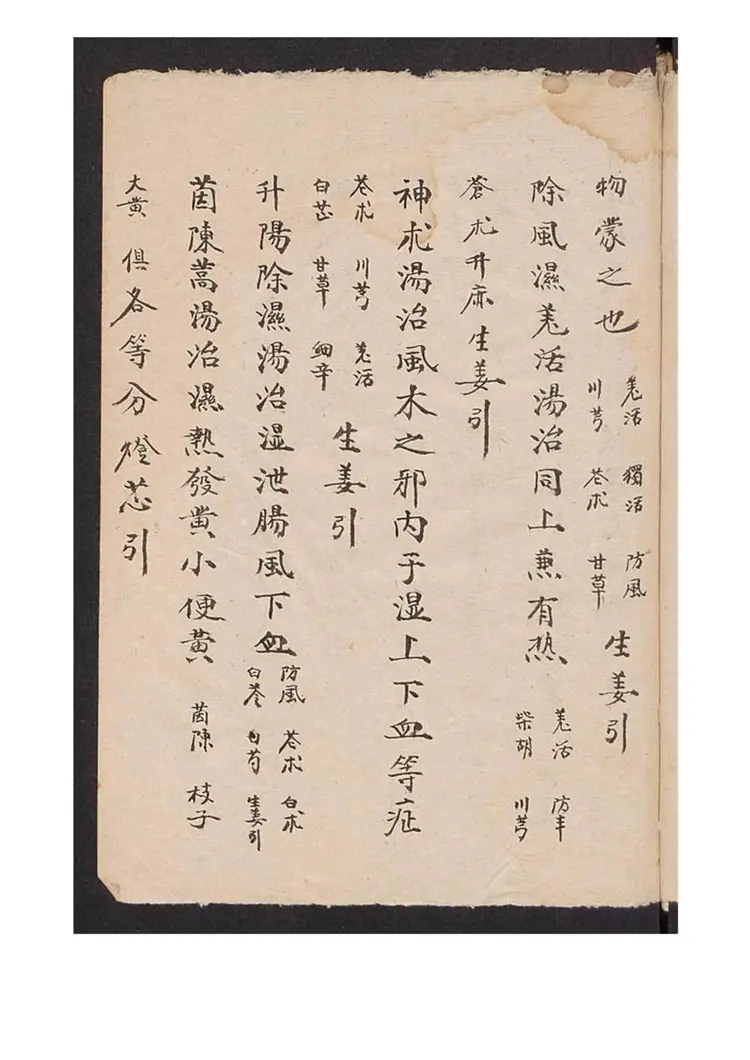 物蒙之也 羌活 獨活 防風 川芎 苍术 甘草 生姜引
除風濕羌活湯治同上兼有热 羌活 防丰 柴胡 川芎
蒼朮升麻生姜引
神朮湯治風木之邪内于湿上下血等症
苍朮 川芎 羌活 白芷 甘草 細辛 生姜引
升陽除濕湯治湿泄腸風下血 防風 苍朮 白朮 白苓 白芍 生姜引
茵陳蒿湯治濕熱發黄小便黄 茵陳 枝子
大黄 俱各等分燈芯引